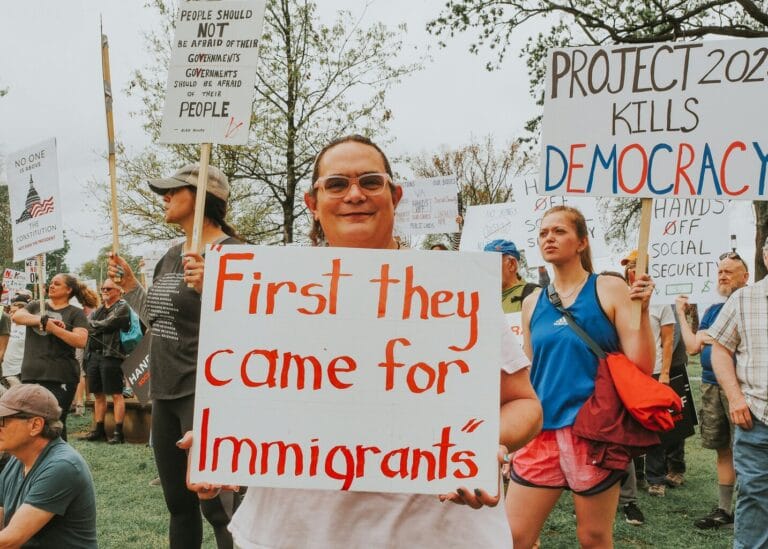 PEOPLE SHOULD
NOT
BE AFRAID OF THEIR
GOVERNMENTS
GOVERNMENTS
SHOULD BE AFRAID
OF THEIR
PEOPLE
NO ONE
IS ABOVE
THE
CONSTITUTION
"First they
came for
Immigrants"
PROJECT 202
KILLS
DEMOCRACY
HANDS
OFF
SOCIAL
SECURITY